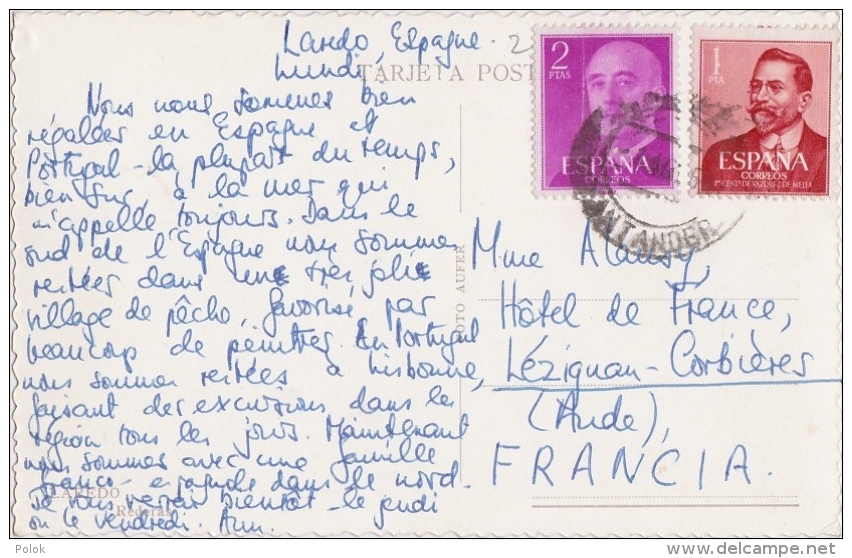 Laredo, Espagne.
Lundi,
TARJETA POST
Nous nous sommes bien
régalées en Espagne et
Portugal - la plupart du temps,
bien sur, à la mer qui
m'appelle toujours. Dans le
sud de l'Espagne nous sommes
restées dans une très jolie
village de pêche, favorisé par
beaucoup de peintres. En Portugal
nous sommes restées à Lisbonne,
faisant des excursions dans la
région tous les jours. Maintenant
nous sommes avec une famille
franco-espagnole dans le nord.
LAREDO
Je vous verrai bientôt - le jeudi
Rederas
ou le vendredi. Ann.
FOTO AUFER
2
PTAS
ESPAÑA
CORREOS
1
PTA
ESPAÑA
CORREOS
1er CENTº DE VAZQUEZ DE MELLA
SANTANDER
Mme Alausy,
Hôtel de France,
Lézignan-Corbières
(Aude),
FRANCIA.
Polok
www.delcampe.net